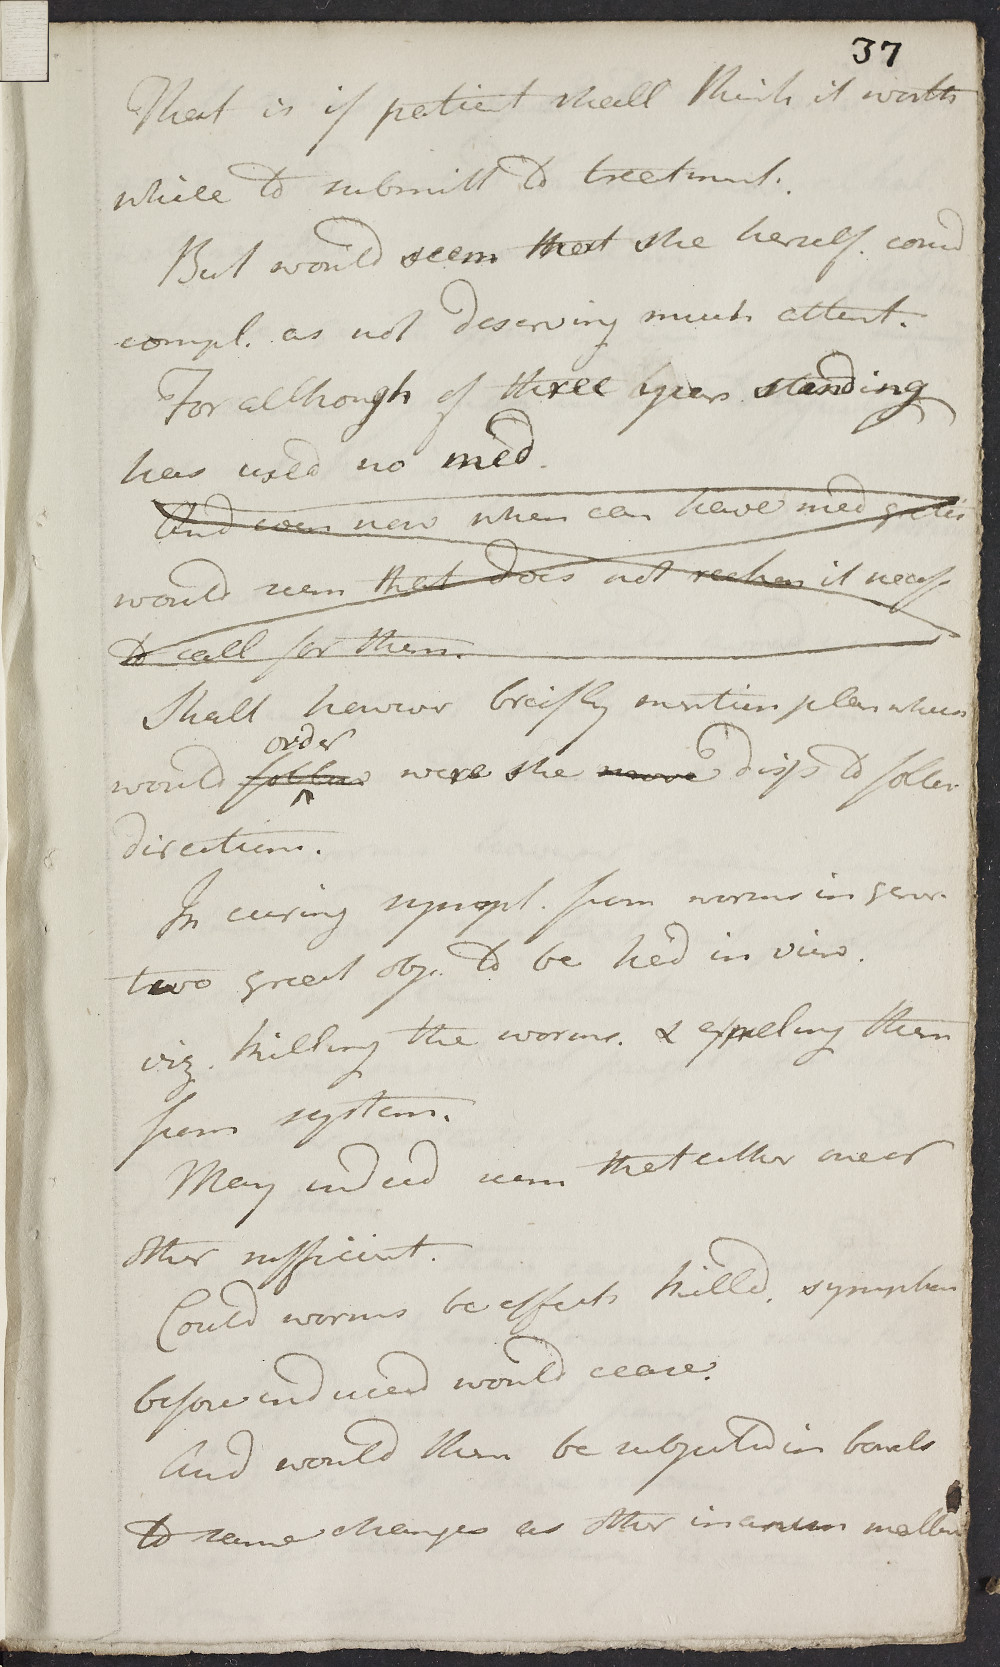 37
That is if patient shall think it worth
while to submitt to treatment.
But would seem that she herself. consd
compl. as not deserving much attent.
For although of three years standing
has used no med.
And even now when can have med gratis
would seem that does not reckon it necess
to call for them.
Shall however breifly mention plan whch
order
would follow were she more disps to follow
directions.
In curing sympt. from worms in gener.
two great obj. to be had in view.
viz. killing the worms. & expelling them
from system.
May indeed seem that either one or
other sufficient.
Could worms be effects killed, symptoms
before induced would cease.
And would then be subjected in bowels
to same changes as other inanim matter